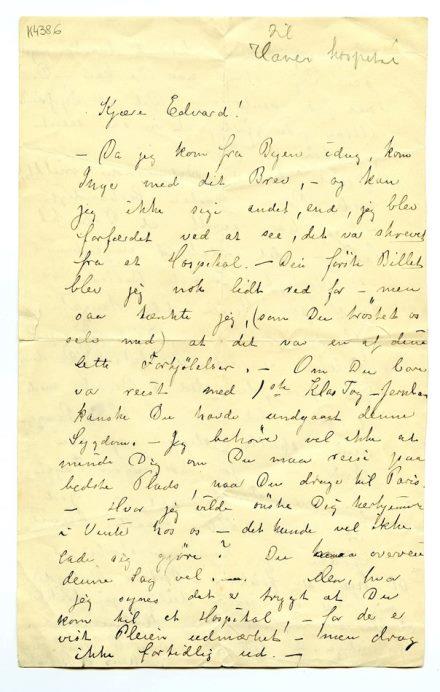 K4386
til
Havre hospital
Kjære Edvard!
– Da jeg kom fra Byen idag, kom
Inge med dit Brev, – og kan
jeg ikke sige andet, end, jeg blev
forfærdet ved at see, det va skrevet
fra et Hospital. – Din første Billet
blev jeg nok lidt ræd for – men
saa tænkte jeg, (som Du trøstet os
selv med) at det var en af dine
lette Forkjølelser. – Om Du bare
va reist med 1ste Klas Tog –
kanske Du havde undgaaet denne
Sygdom. – Jeg behøve vel ikke at
minde Dig om Du maa reise paa
bedste Plads, naa Du drage til Paris.
– Hvor jeg vilde ønske Dig herhjemme
i Vinte hos os – det kunde vel ikke
lade sig gjøre? Du overveie
denne Sag vel. –. Men, hvor
jeg synes det er trygt at Du
kom til et Hospital, – for de e
vist Pleien udmærket – men drag
ikke fortidlig ud. –